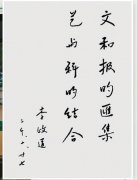 文和报的匯集
艺与科的结合
李政道